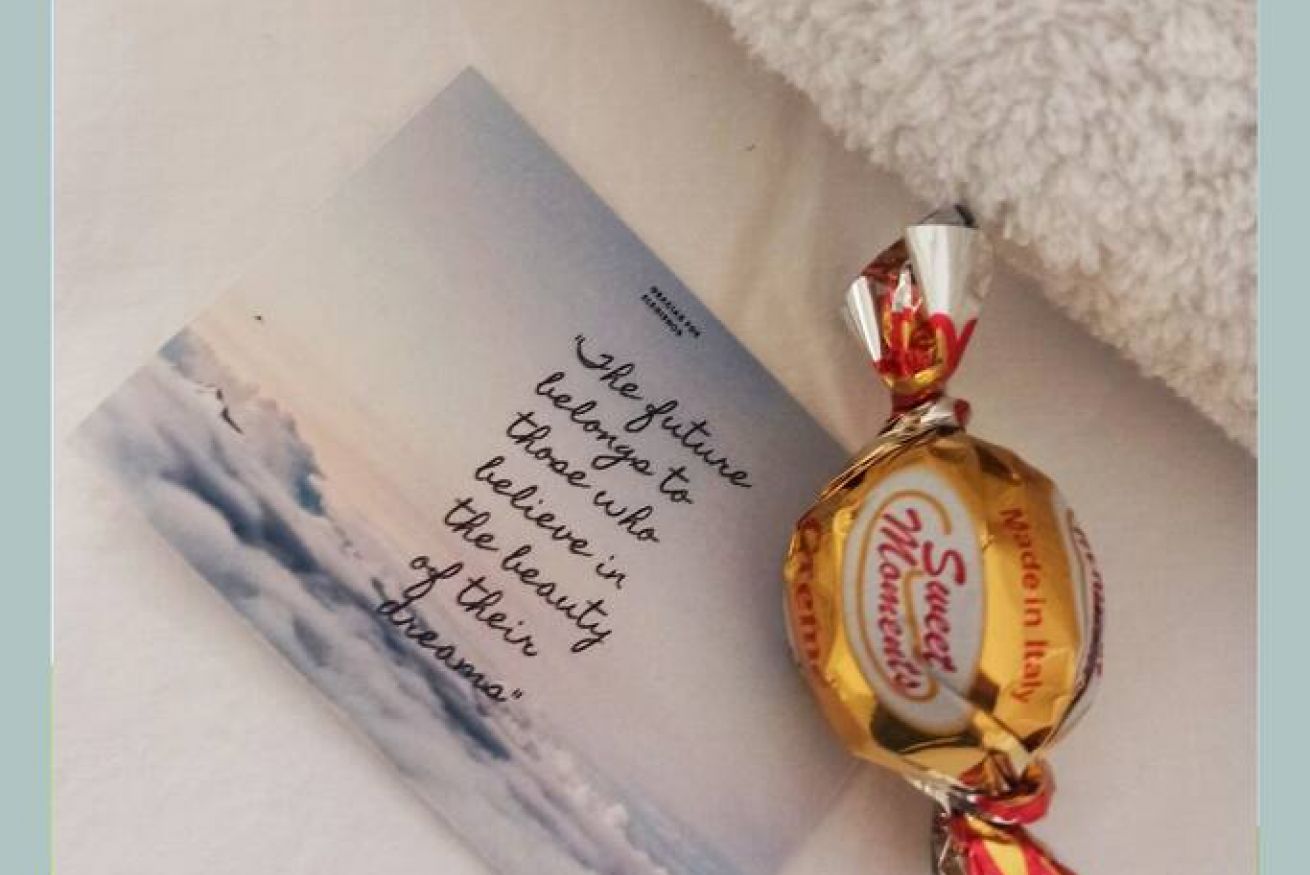 GRACIAS POR
ELEGIRNOS
"The future
belongs to
those who
believe in
the beauty
of their
dreams"
Sweet
Moments
Made in Italy